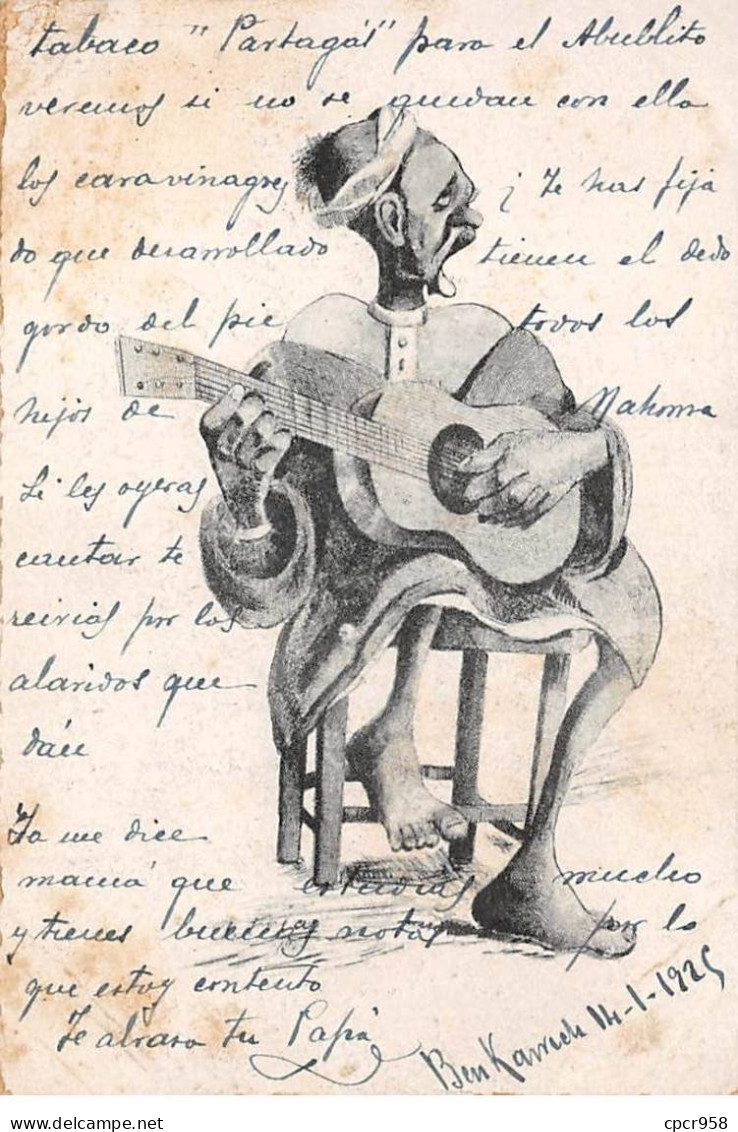 tabaco "Partagás" para el Abuelito
veremos si no se quedan con ella
los caravinagres ¡ Te has fija
do que desarrollado tienen el dedo
gordo del pie todos los
hijos de Mahoma
Si les oyeras
cantar te
reirias por los
alaridos que
dán
Ya me dice
mamá que estudias mucho
y tienes buenas notas por lo
que estoy contento
Te abraza tu Papá
Ben Karrich 14-1-1925
cpcr958